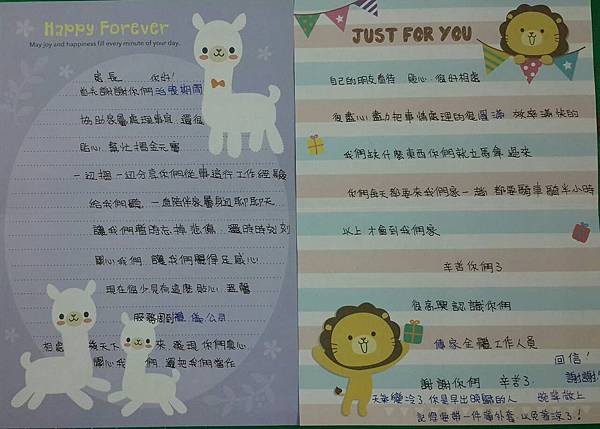 Happy Forever
May joy and happiness fill every minute of your day.
處長 你好!
首先謝謝你們治喪期間
協助家屬處理事宜,還很
貼心,幫忙摺金元寶
一边摺一边分享你們從事這行工作經驗
給我們聽,一直陪伴家屬身边聊聊天
讓我們暫時忘掉悲傷,還時時刻刻
關心我們,讓我們覺得足感心
現在很少見有這麼貼心,温馨
服務周到禮儀公司
相處 幾天下 來,發現,你們貴心
關心我 們,還把我們當作
JUST FOR YOU
自己的朋友看待 貼心.很好相處
很盡心盡力把事情處理的很圓滿 效率滿快的
我們缺什麼東西你們就立馬拿過來
你們每天都要來我們家一趟 都要騎車騎半小時
以上才會到我們家
辛苦你們了
很高興認識你們
傳家全體工作人員
回信!
謝謝你們 辛苦了.
謝謝!
天氣變冷了.你是早出晚歸的人 晚要做上
記得要帶一件薄外套.以免著涼了!